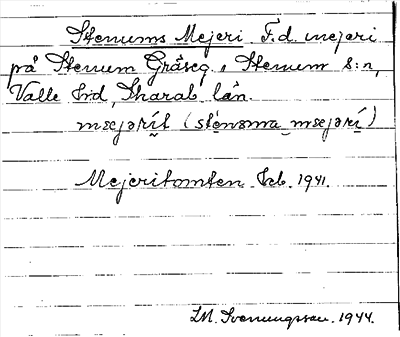 Stenums Mejeri F.d. mejeri
på Stenum Gråseg, Stenum s:n,
Valle hd, Skarab. län.
mɛejərít (sténsma mɛejərí)
Mejeritomten Jeb. 1941.
I.M. Svenungsson. 1944.